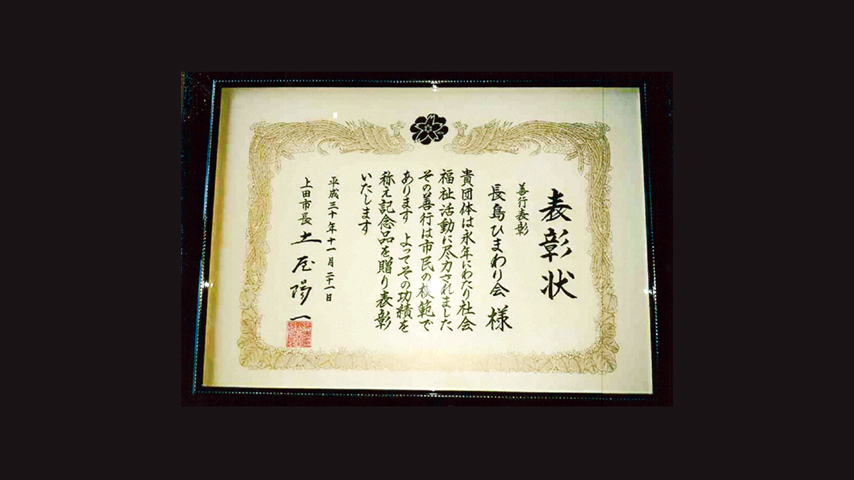 表彰状
善行表彰
長島ひまわり会 様
貴団体は永年にわたり社会
福祉活動に尽力されました
その善行は市民の模範で
あります よってその功績を
称え記念品を贈り表彰
いたします
平成三十年十一月二十一日
上田市長 土屋陽一